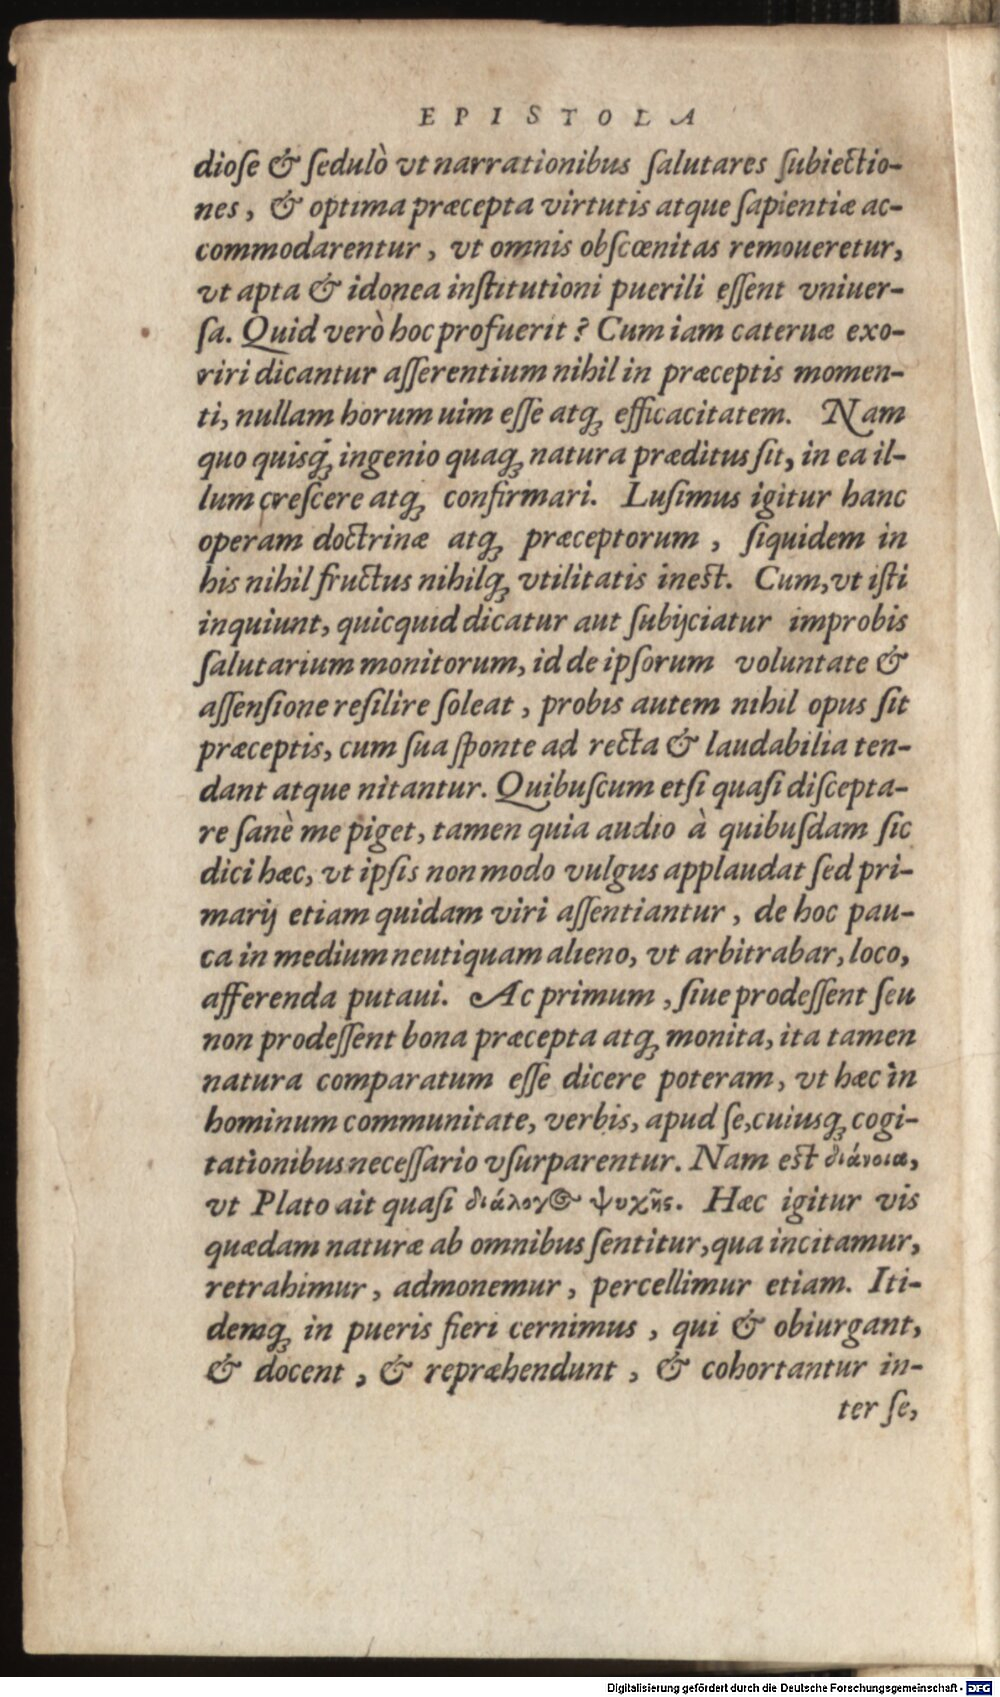 EPISTOLA
dioſe & ſedulò vt narrationibus ſalutares ſubiectio-
nes, & optima præcepta virtutis atque ſapientiæ ac-
commodarentur, vt omnis obſcœnitas remoueretur,
vt apta & idonea inſtitutioni puerili eſſent vniuer-
ſa. Quid verò hoc profuerit? Cum iam cateruæ exo-
riri dicantur aſſerentium nihil in præceptis momen-
ti, nullam horum uim eſſe atq́ efficacitatem. Nam
quo quisq́ ingenio quaq́ natura præditus ſit, in ea il-
lum creſcere atq́ confirmari. Luſimus igitur hanc
operam doctrinæ atq́ præceptorum, ſiquidem in
his nihil fructus nihilq́ vtilitatis inest. Cum, vt iſti
inquiunt, quicquid dicatur aut ſubijciatur improbis
ſalutarium monitorum, id de ipſorum voluntate &
aſſenſione reſilire ſoleat, probis autem nihil opus ſit
præceptis, cum ſua ſponte ad recta & laudabilia ten-
dant atque nitantur. Quibuſcum etſi quaſi diſcepta-
re ſanè me piget, tamen quia audio à quibuſdam ſic
dici hæc, vt ipſis non modo vulgus applaudat ſed pri-
marij etiam quidam viri aſſentiantur, de hoc pau-
ca in medium neutiquam alieno, vt arbitrabar, loco,
afferenda putaui. Ac primum, ſiue prodeſſent ſeu
non prodeſſent bona præcepta atq́ monita, ita tamen
natura comparatum eſſe dicere poteram, vt hæc in
hominum communitate, verbis, apud ſe, cuiusq́ cogi-
tationibus neceſſario vſurparentur. Nam est διάνοια,
vt Plato ait quaſi διάλογος ψυχῆς. Hæc igitur vis
quædam naturæ ab omnibus ſentitur, qua incitamur,
retrahimur, admonemur, percellimur etiam. Iti-
demq́ in pueris fieri cernimus, qui & obiurgant,
& docent, & repræhendunt, & cohortantur in-
ter ſe,
Digitalisierung gefördert durch die Deutsche Forschungsgemeinschaft - DFG